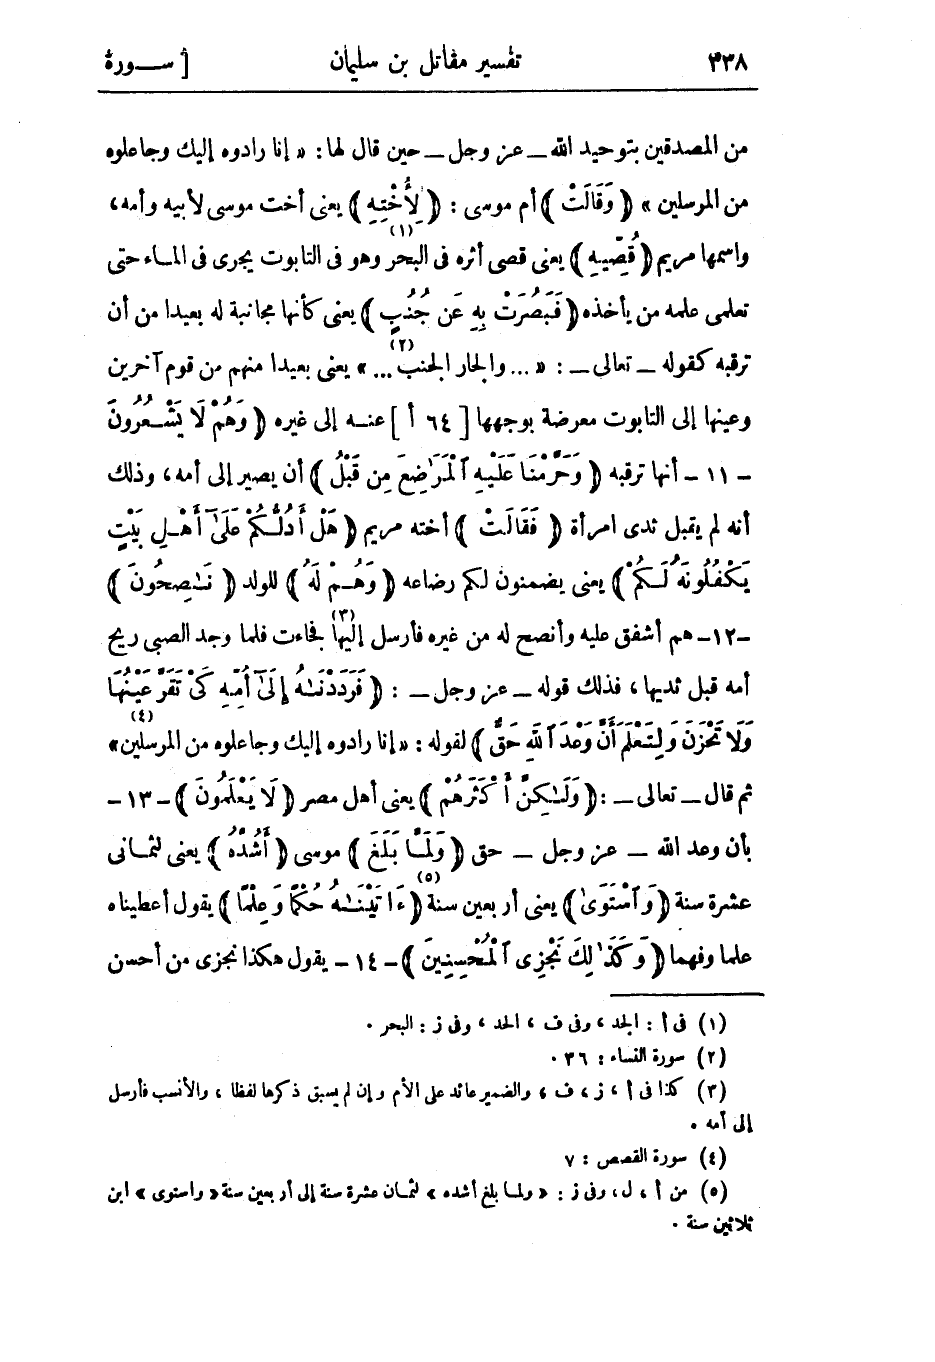 ٣٣٨ تفسير مقاتل بن سليمان [ سـورة
من المصدقين بتوحيد الله ـ عز وجل ـ حين قال لها : « إنا رادوه إليك وجاعلوه
من المرسلين » ( وَقَالَتْ ) أم موسى : ( لِأُخْتِهِ ) يعنى أخت موسى لأبيه وأمه ،
واسمها مريم ( قُصِّيهِ ) يعنى قصى أثره فى البحر (١) وهو فى التابوت يجرى فى المـاء حتى
تعلمى علمه من يأخذه ( فَبَصُرَتْ بِهِ عَن جُنُبٍ ) يعنى كأنها مجانبة له بعيدا من أن
ترقبه كقوله ـ تعالى ـ : « ... والجار الجنب ... » (٢) يعنى بعيدا منهم من قوم آخرين
وعينها إلى التابوت معرضة بوجهها [ ٦٤ أ ] عنـه إلى غيره ( وَهُمْ لَا يَشْعُرُونَ )
ـ ١١ ـ أنها ترقبه ( وَحَرَّمْنَا عَلَيْهِ ٱلْمَرَاضِعَ مِن قَبْلُ ) أن يصير إلى أمه ، وذلك
أنه لم يقبل ثدى امرأة ( فَقَالَتْ ) أخته مريم ( هَلْ أَدُلُّكُمْ عَلَىٰٓ أَهْلِ بَيْتٍ
يَكْفُلُونَهُ لَكُمْ ) يعنى يضمنون لكم رضاعه ( وَهُـمْ لَهُ ) للولد ( نَـٰصِحُونَ )
ـ ١٢ ـ هم أشفق عليه وأنصح له من غيره فأرسل إليها (٣) فجاءت فلما وجد الصبى ريح
أمه قبل ثديها ، فذلك قوله ـ عز وجل ـ : ( فَرَدَدْنَـٰهُ إِلَىٰٓ أُمِّهِ كَىْ تَقَرَّ عَيْنُهَا
وَلَا تَحْزَنَ وَلِتَعْلَمَ أَنَّ وَعْدَ ٱللَّهِ حَقٌّ ) لقوله : « إنا رادوه إليك وجاعلوه من المرسلين » (٤)
ثم قال ـ تعالى ـ : ( وَلَـٰكِنَّ أَكْثَرَهُمْ ) يعنى أهل مصر ( لَا يَعْلَمُونَ ) ـ ١٣ ـ
بأن وعد الله ـ عز وجل ـ حق ( وَلَمَّا بَلَغَ ) موسى ( أَشُدَّهُ ) يعنى لثمـانى
عشرة سنة ( وَٱسْتَوَىٰ ) يعنى أربعين سنة (٥) ( ءَاتَيْنَـٰهُ حُكْمًا وَعِلْمًا ) يقول أعطيناه
علما وفهما ( وَكَذَٰلِكَ نَجْزِى ٱلْمُحْسِنِينَ ) ـ ١٤ ـ يقول هكذا نجزى من أحسن
(١) فى أ : الجد ، وفى ف ، الحد ، وفى ز : البحر .
(٢) سورة النساء : ٣٦ .
(٣) كذا فى أ ، ز ، ف ، والضمير عائد على الأم وإن لم يسبق ذكرها لفظا ، والأنسب فأرسل
إلى أمه .
(٤) سورة القصص : ٧
(٥) من أ ، ل ، وفى ز : « ولمـا بلغ أشده » لثمـان عشرة سنة إلى أربعين سنة « واستوى » ابن
ثلاثين سنة .